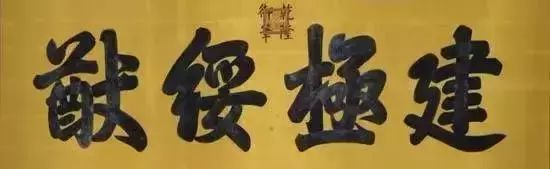 建極綏猷
乾隆御筆